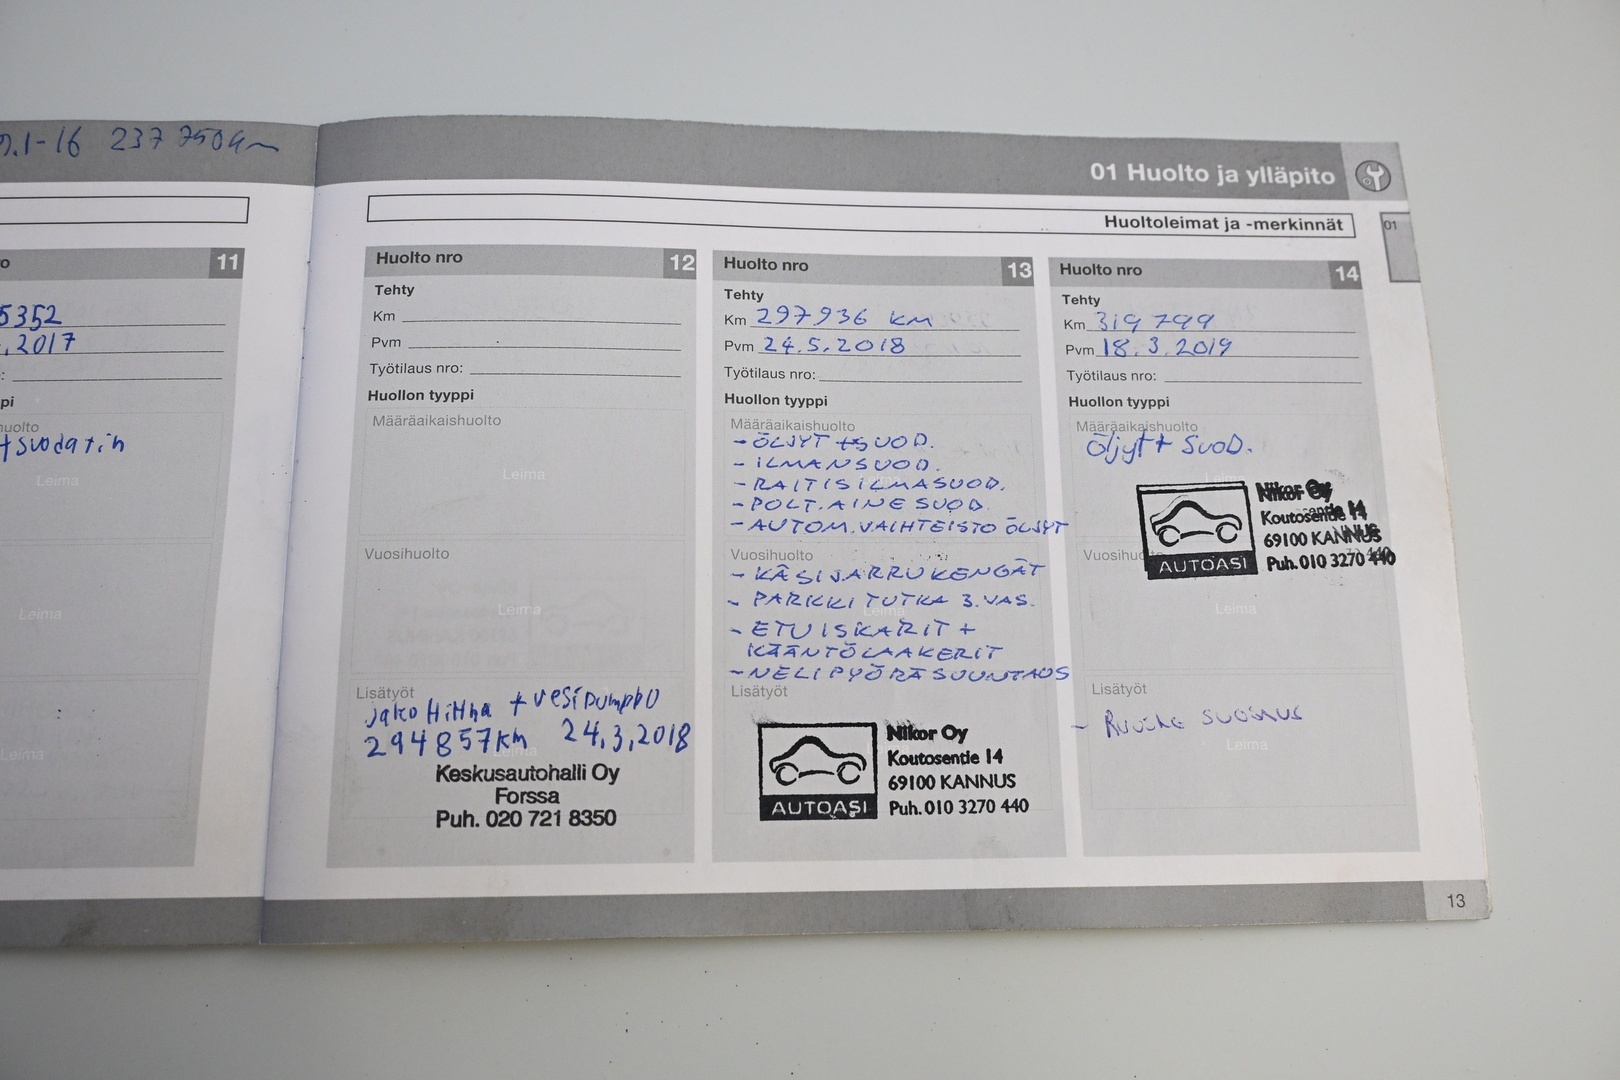 .1-16 237 750km
11
5352
.2017
:
ppi
huolto
+suodatin
Leima
Leima
Leima
01 Huolto ja ylläpito
Huoltoleimat ja -merkinnät
01
Huolto nro 12
Tehty
Km
Pvm
Työtilaus nro:
Huollon tyyppi
Määräaikaishuolto
Leima
Vuosihuolto
Leima
Lisätyöt
jakoHiHna + vesipumppu
294857km 24.3.2018
Leima
Keskusautohalli Oy
Forssa
Puh. 020 721 8350
Huolto nro 13
Tehty
Km 297936 KM
Pvm 24.5.2018
Työtilaus nro:
Huollon tyyppi
Määräaikaishuolto
- ÖLJYT + SUOD.
- ILMANSUOD.
- RAITISILMASUOD.
- POLT.AINESUOD.
- AUTOM.VAIHTEISTO ÖLJYT
Vuosihuolto
- KÄSIJARRUKENGÄT
- PARKKITUTKA 3.VAS.
Leima
- ETUISKARIT +
KÄÄNTÖLAAKERIT
- NELIPYÖRÄSUUNTAUS
Lisätyöt
Nikor Oy
Koutosentie 14
69100 KANNUS
AUTOASI Puh. 010 3270 440
Huolto nro 14
Tehty
Km 319 799
Pvm 18.3.2019
Työtilaus nro:
Huollon tyyppi
Määräaikaishuolto
öljyt + SUOD.
Nikor Oy
Koutosentie 14
69100 KANNUS
AUTOASI Puh. 010 3270 440
Vuosihuolto
Leima
Lisätyöt
- Ruoste suojaus
Leima
13